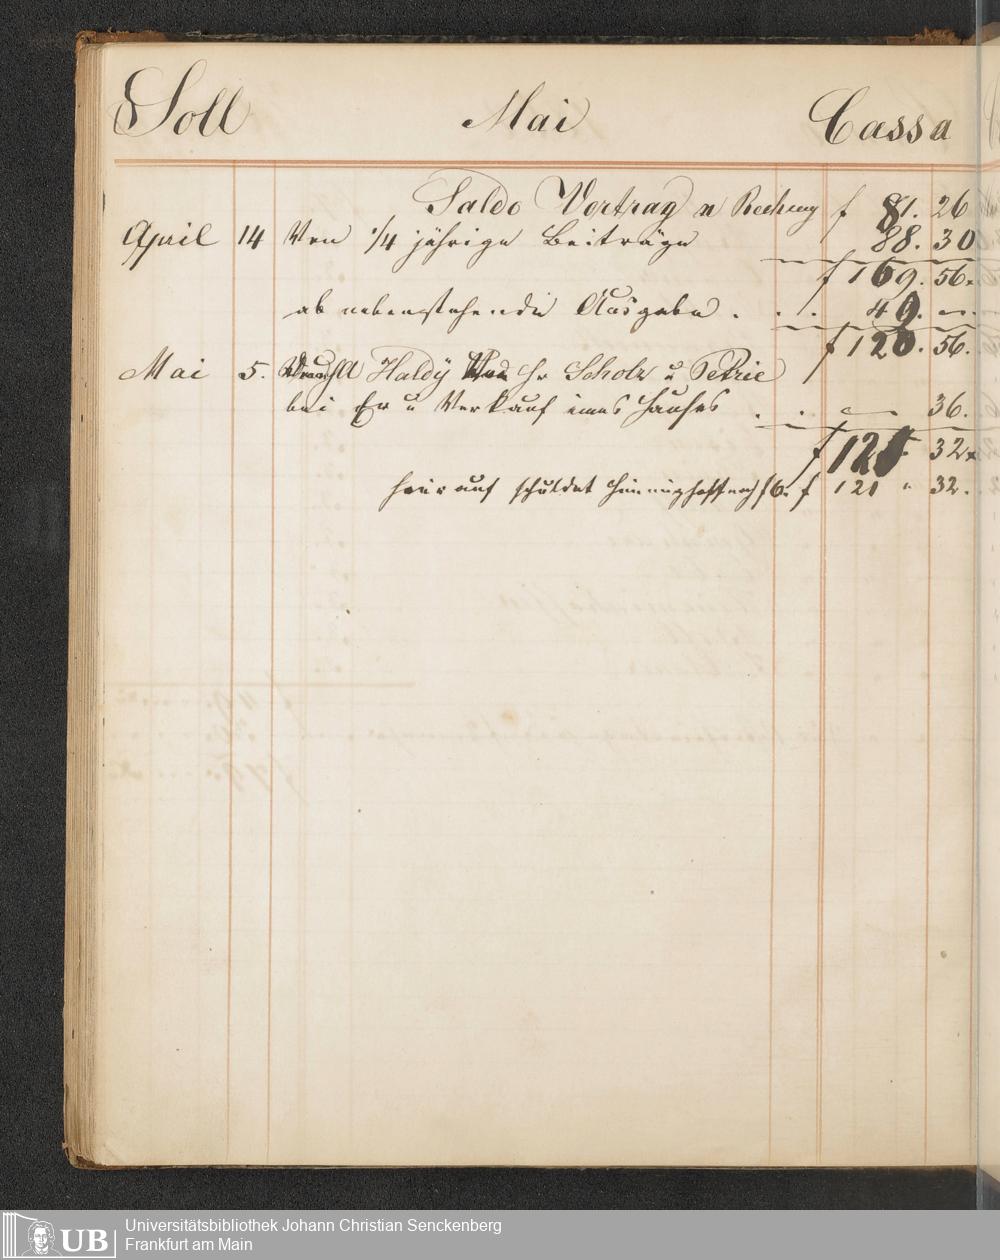 Soll Mai Cassa
Saldo Vortrag n Rechnung f 81. 26
April 14 Von 1/4 jährige Beiträge 88. 30
f 169. 56.
ab nebenstehende Ausgabe . . . 49. —
f 120. 56.
Mai 5. Haldy Hr Scholz u Petrie
bei Er u Verkauf eines Hauses . . — 36.
f 121 32
hierauf schuldet f 6. f 121 " 32.
Universitätsbibliothek Johann Christian Senckenberg
Frankfurt am Main
UB